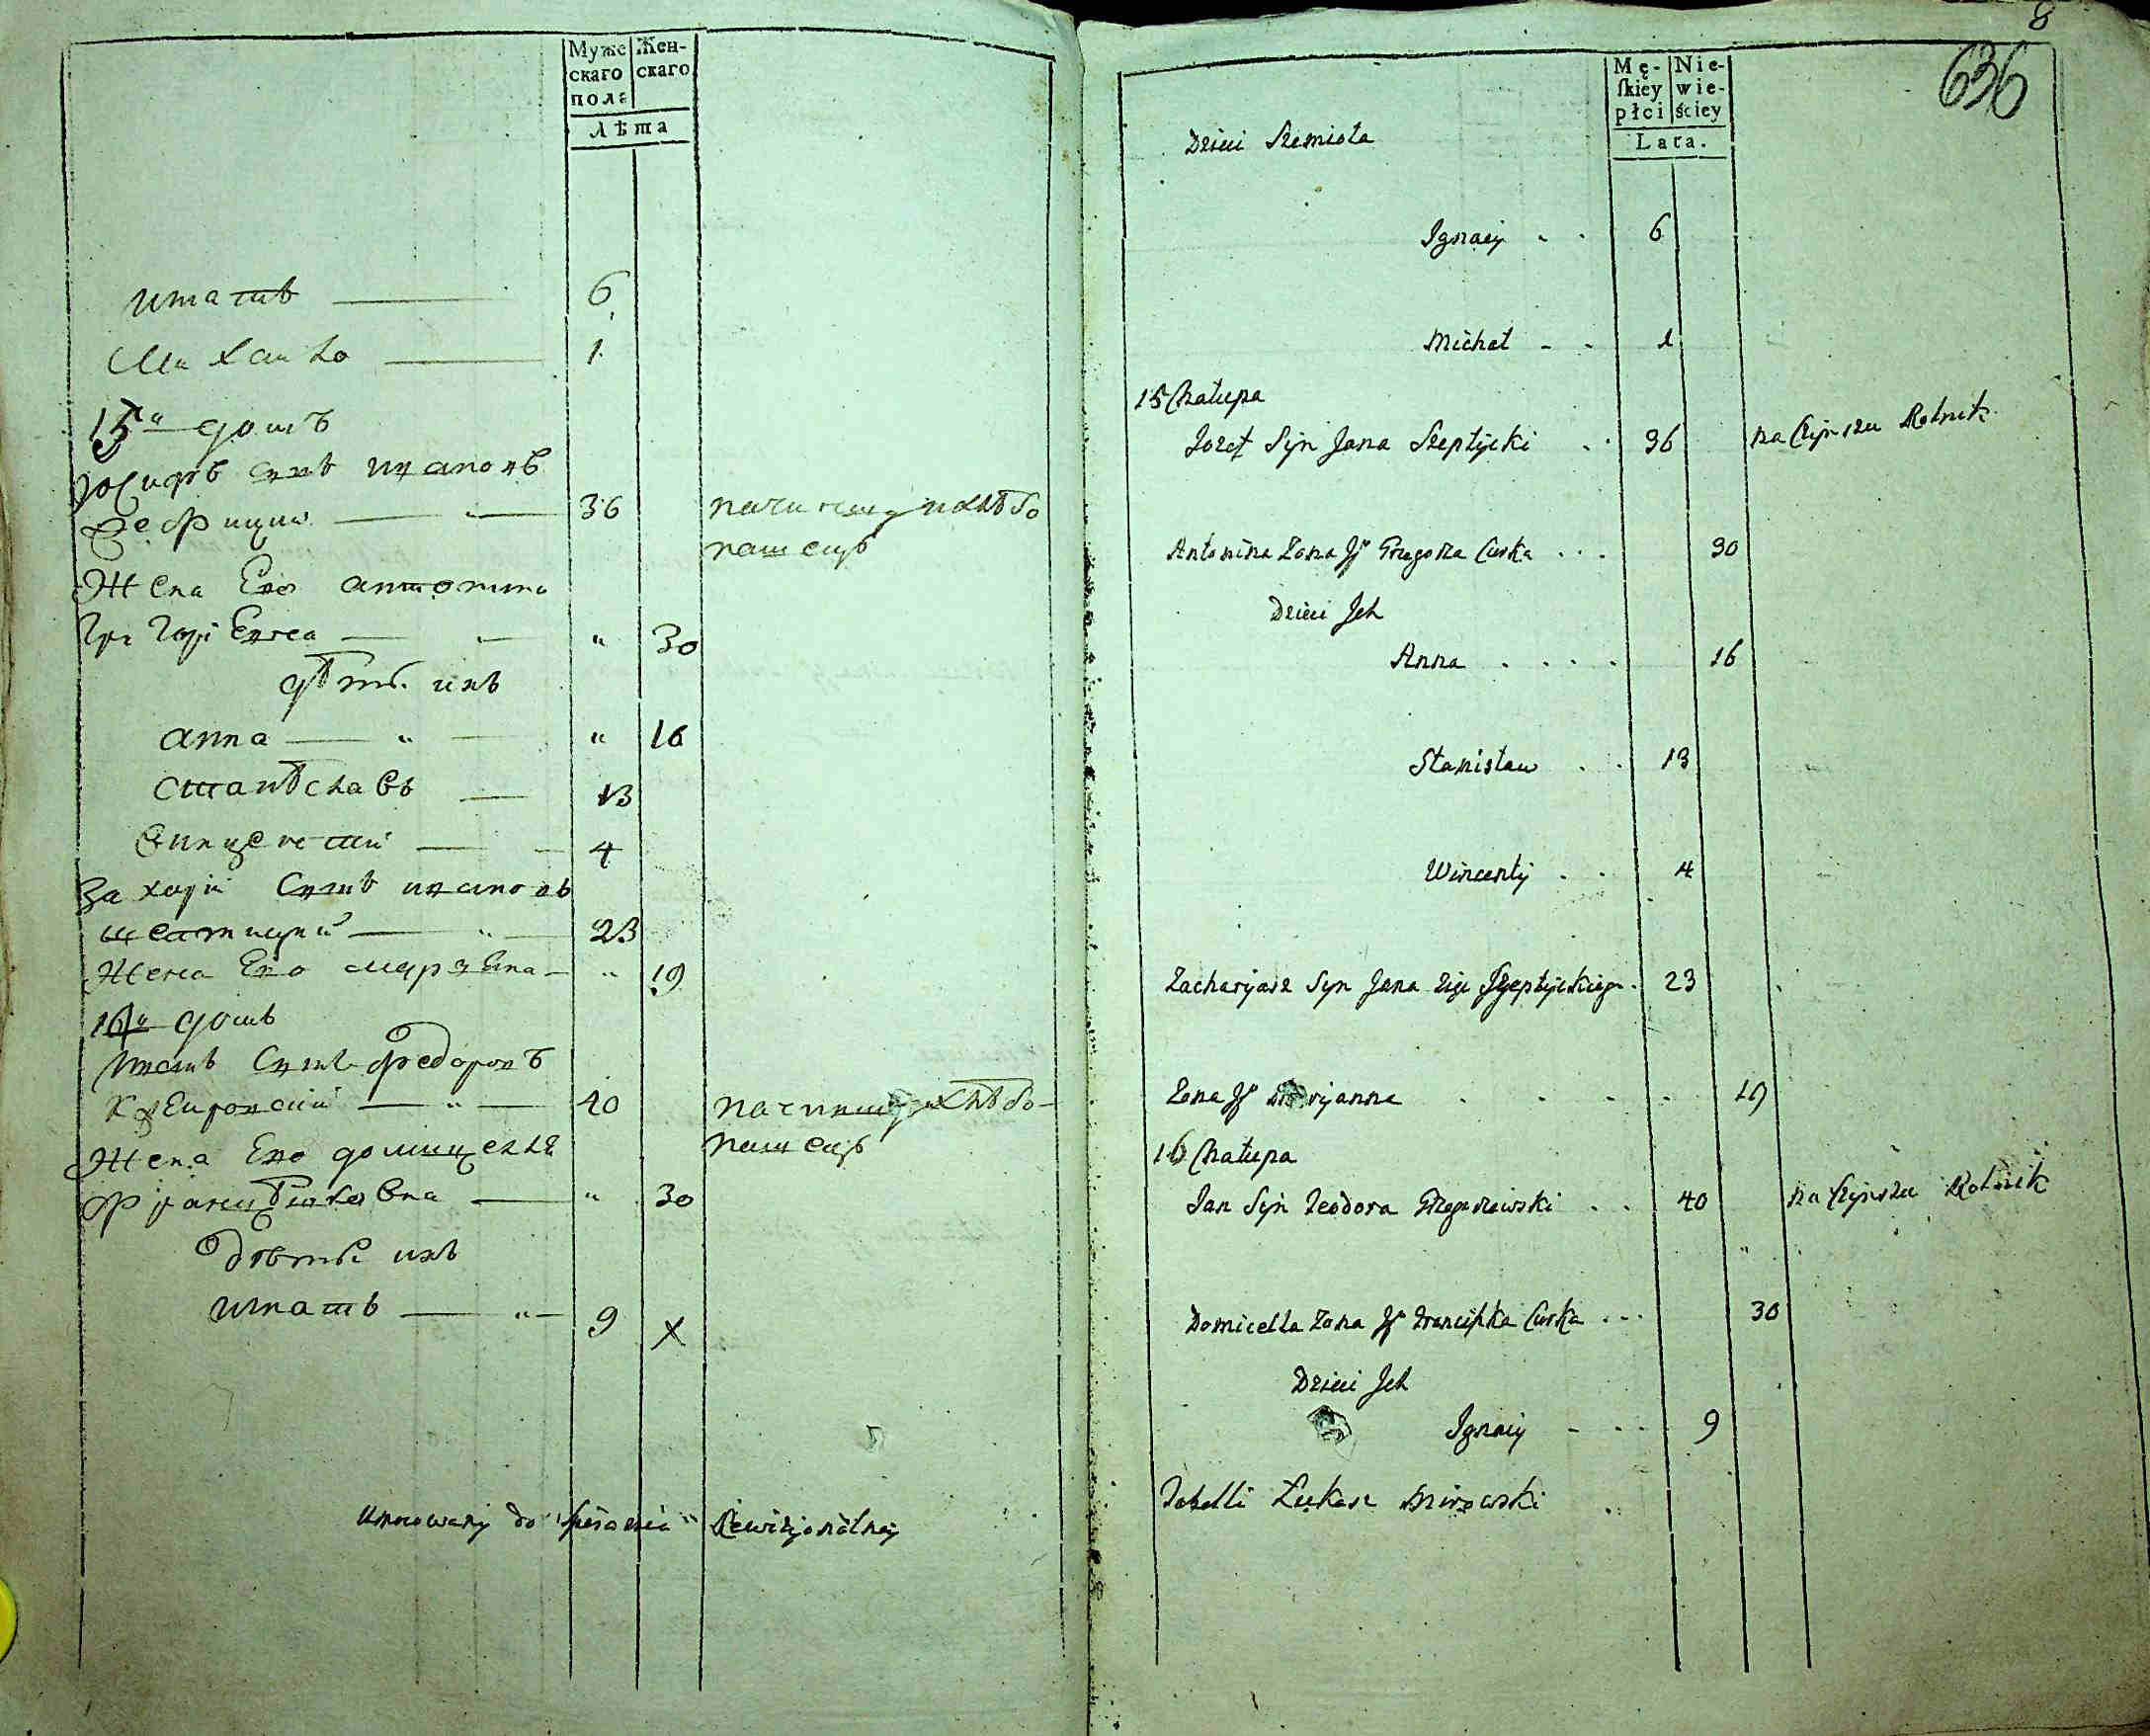 Муже
скаго
пола
Жен-
скаго
лѣта
Игнатъ 6
Михайло 1
15й домъ
Іосифъ сынъ ивановъ
36 на чиншу хлѣбо
пашецъ
Жена Его антонина
Григорiевна " 30
дѣти ихъ
анна " 16
станѣславъ 13
винцентий 4
Захарій Сынъ ивановъ
шептицкий 23
Жена Его маряна " 19
16й домъ
Иванъ Сынъ Федоровъ
40 на чиншу хлѣбо-
пашецъ
Жена Его домицеля
Францѣшковна " 30
дѣти ихъ
Игнатъ 9 x
Umocowany do pisania Rewizjonalney
8
636
Mę-
skiey
płci
Nie-
wie-
ściey
Lata.
Dzieci Szemiota
Ignacy 6
Michał 1
15 Chałupa
Jozef Syn Jana Szeptycki 36 na Czynszu Rolnik
Antonina Zona Jº Grzegorza Curka 30
Dzieci Jch
Anna 16
Stanisław 13
Wincenty 4
Zacharyasz Syn Jana Szeptyckiego 23
Zona Jº Maryanna 19
16 Chałupa
Jan Syn Teodora 40 na Czynszu Rolnik
Domicella Zona Jº Franciszka Curka 30
Dzieci Jch
Ignacy 9
Tabelli Łukasz